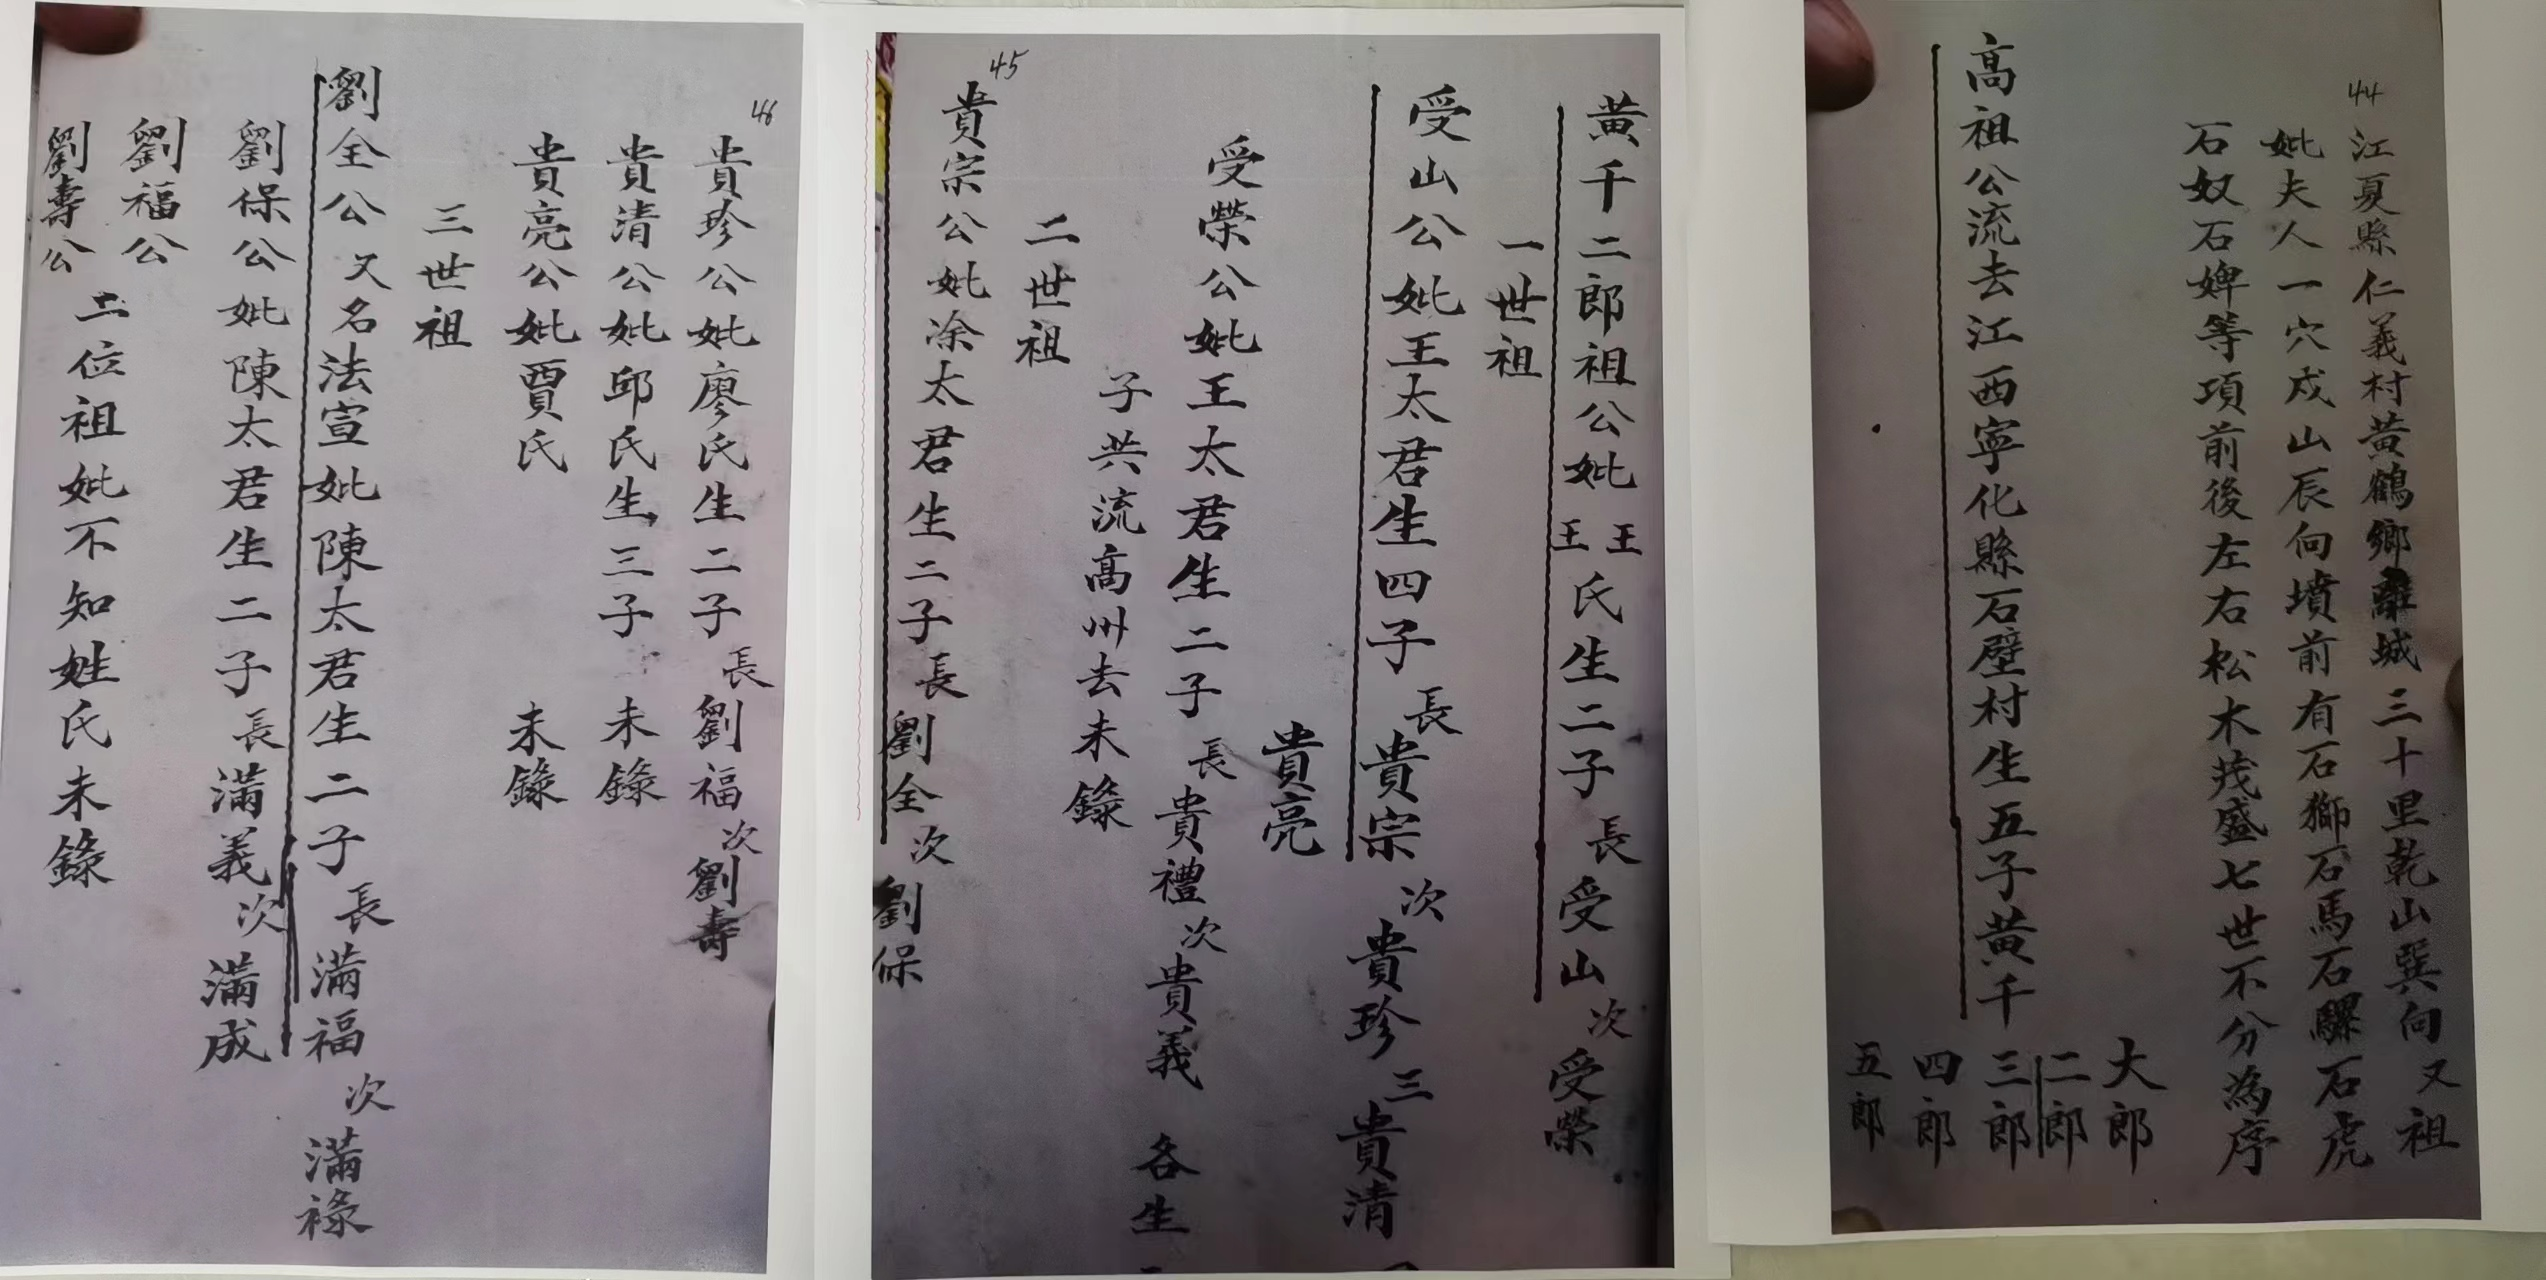 44
江夏縣仁義村黃鶴鄉離城三十里乾山巽向又祖
妣夫人一穴戌山辰向墳前有石獅石馬石騾石虎
石奴石婢等項前後左右松木茂盛七世不分為序
高祖公流去江西寧化縣石壁村生五子黃千
大郎
二郎
三郎
四郎
五郎
黃千二郎祖公妣王王氏生二子長受山次受榮
一世祖
受山公妣王太君生四子長貴宗次貴珍三貴清
貴亮
受榮公妣王太君生二子長貴禮次貴義 各生
子共流高州去未錄
二世祖
45
貴宗公妣凃太君生二子長劉全次劉保
46
貴珍公妣廖氏生二子長劉福次劉壽
貴清公妣邱氏生三子 未錄
貴亮公妣賈氏 未錄
三世祖
劉全公又名法宣妣陳太君生二子長滿福次滿祿
劉保公妣陳太君生二子長滿義次滿成
劉福公
劉壽公
二位祖妣不知姓氏未錄